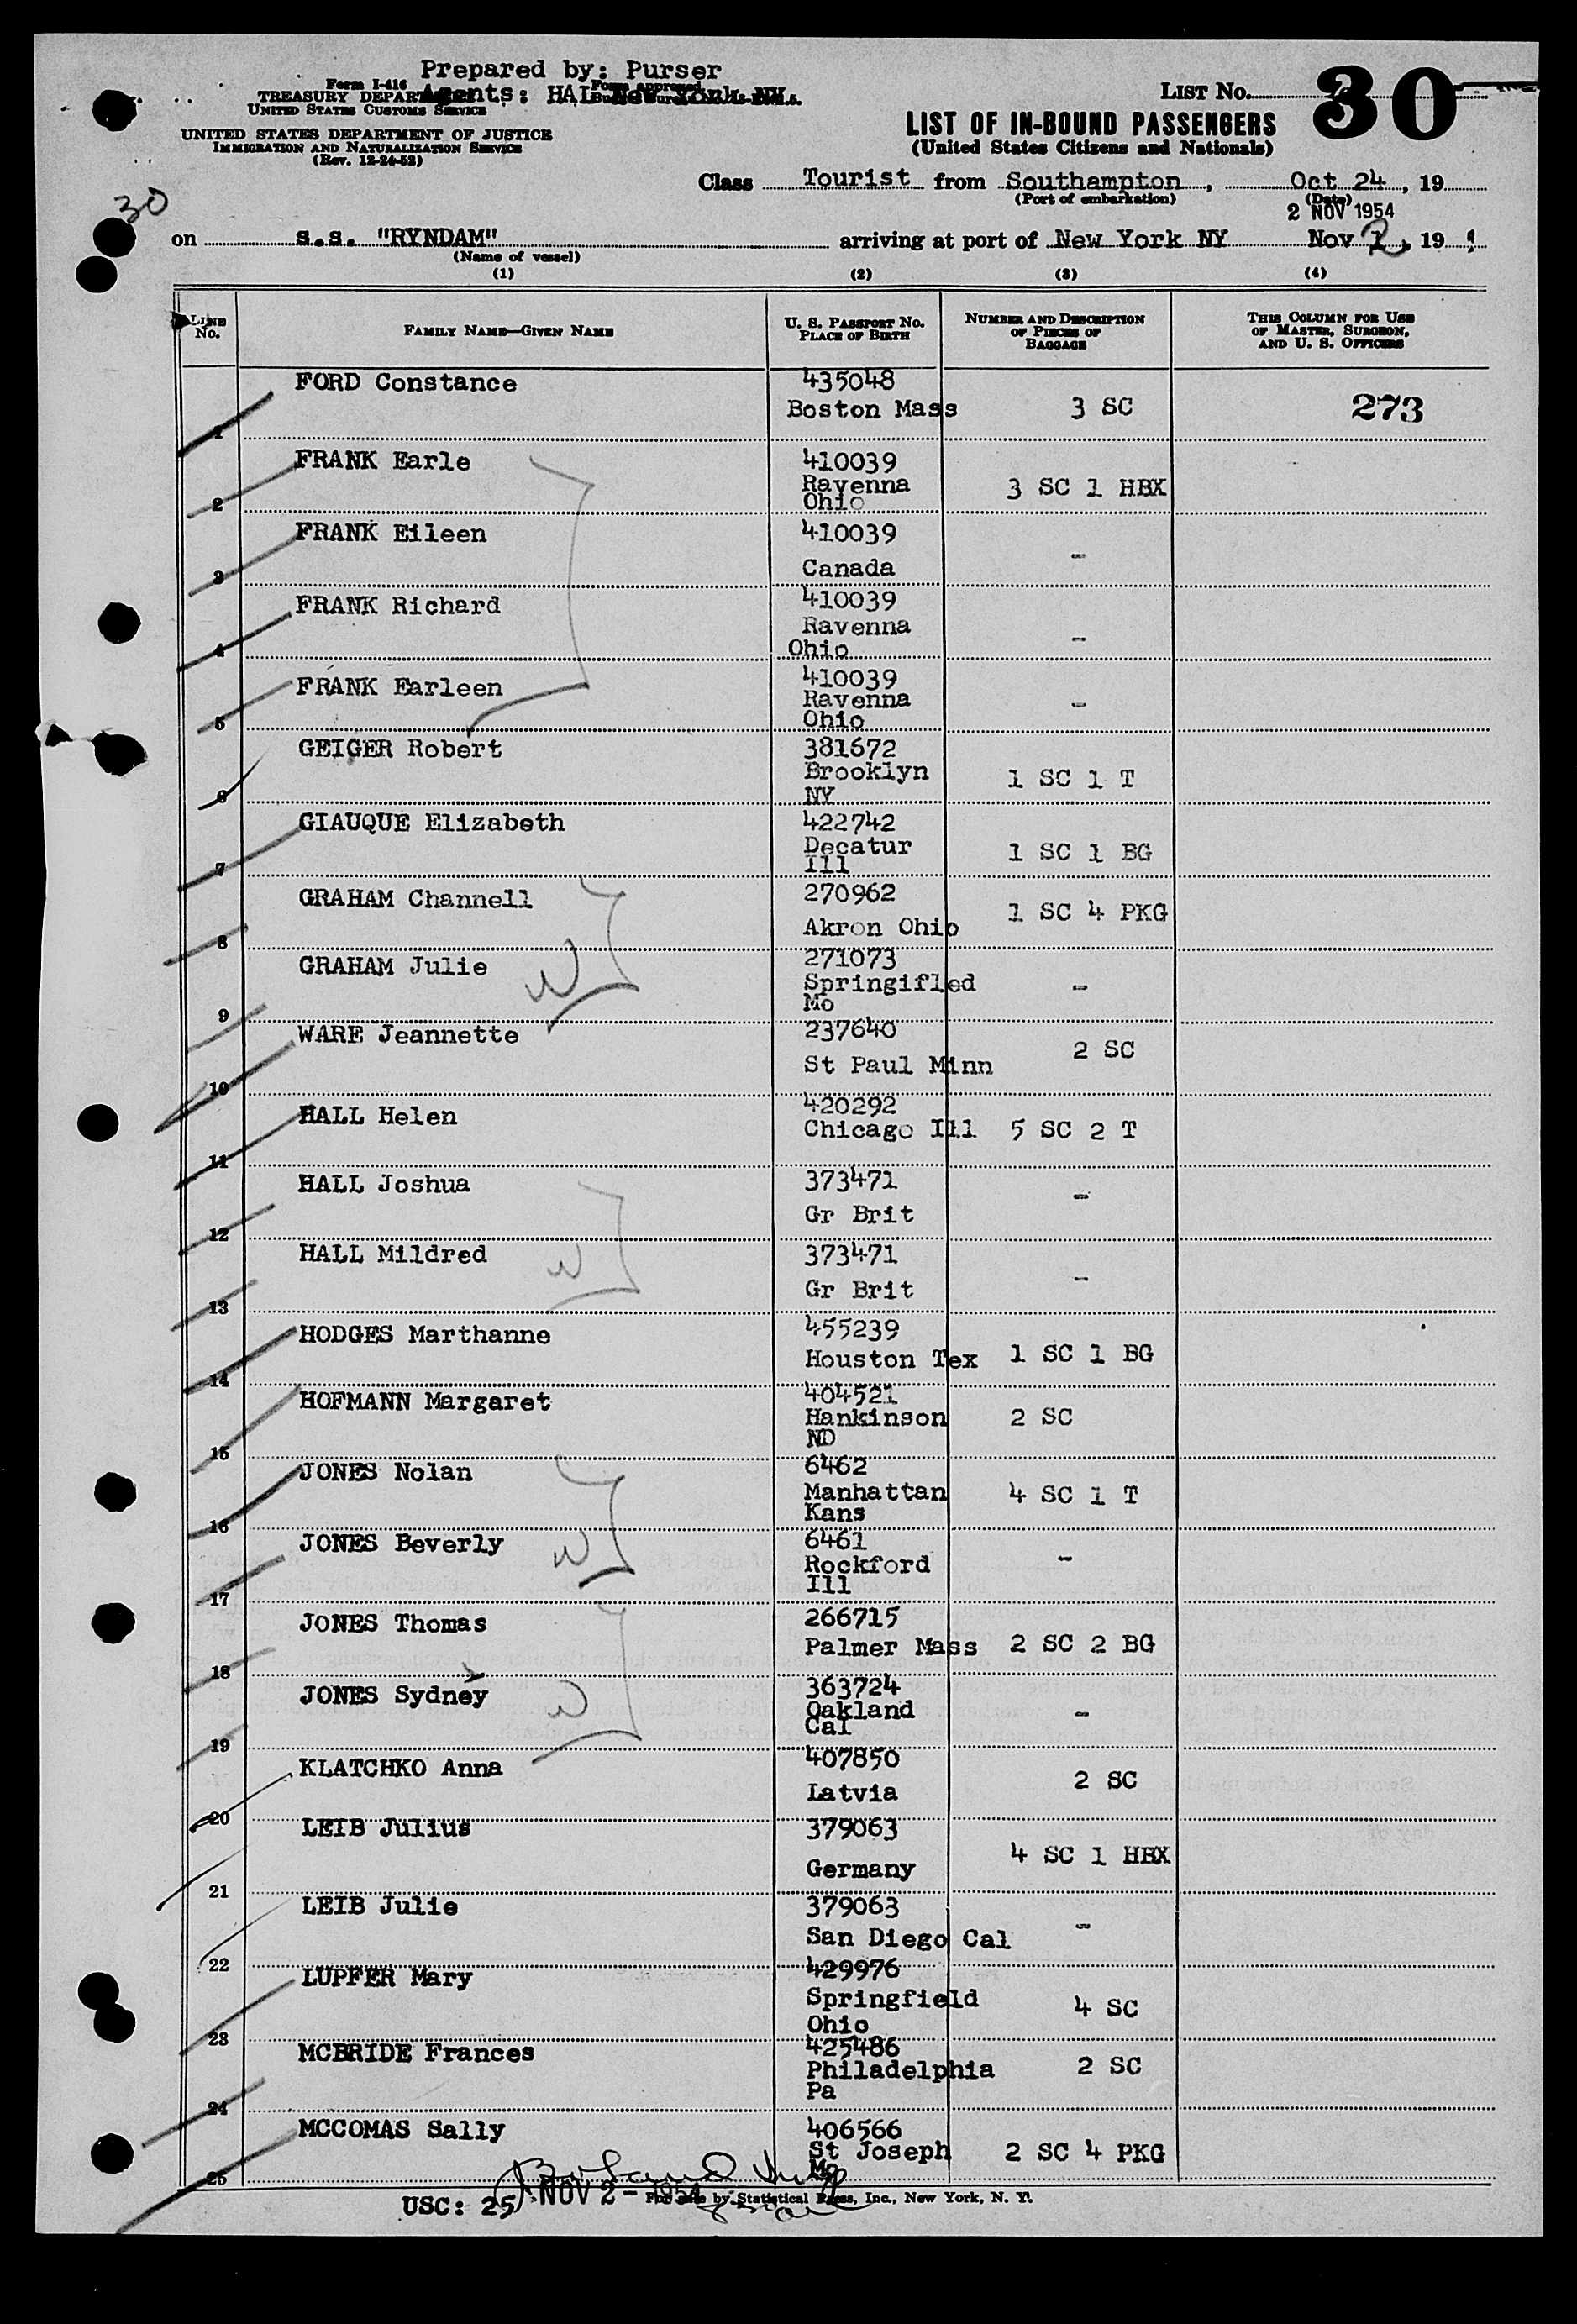 Prepared by: Purser
Form I-416
TREASURY DEPARTMENT
Agents: HAL New York NY
UNITED STATES CUSTOMS SERVICE
UNITED STATES DEPARTMENT OF JUSTICE
IMMIGRATION AND NATURALIZATION SERVICE
(Rev. 12-24-52)
30
LIST No.
30
LIST OF IN-BOUND PASSENGERS
(United States Citizens and Nationals)
Class Tourist from Southampton, Oct 24, 19
(Port of embarkation) (Date)
2 NOV 1954
on s.s. "RYNDAM" arriving at port of New York NY Nov 2, 19
(Name of vessel)
(1) (2) (3) (4)
LINE No. FAMILY NAME—GIVEN NAME U. S. PASSPORT No. PLACE OF BIRTH NUMBER AND DESCRIPTION OF PIECES OF BAGGAGE THIS COLUMN FOR USE OF MASTER, SURGEON, AND U. S. OFFICERS
1 FORD Constance 435048
Boston Mass 3 SC 273
2 FRANK Earle 410039
Ravenna 3 SC 1 HBX
Ohio
3 FRANK Eileen 410039
Canada -
4 FRANK Richard 410039
Ravenna -
Ohio
5 FRANK Earleen 410039
Ravenna -
Ohio
6 GEIGER Robert 381672
Brooklyn 1 SC 1 T
NY
7 GIAUQUE Elizabeth 422742
Decatur 1 SC 1 BG
Ill
8 GRAHAM Channell 270962
Akron Ohio 1 SC 4 PKG
9 GRAHAM Julie 271073
W Springifled -
Mo
10 WARE Jeannette 237640
St Paul Minn 2 SC
11 HALL Helen 420292
Chicago Ill 5 SC 2 T
12 HALL Joshua 373471
Gr Brit -
13 HALL Mildred 373471
W Gr Brit -
14 HODGES Marthanne 455239
Houston Tex 1 SC 1 BG
15 HOFMANN Margaret 404521
Hankinson 2 SC
ND
16 JONES Nolan 6462
Manhattan 4 SC 1 T
Kans
17 JONES Beverly 6461
W Rockford -
Ill
18 JONES Thomas 266715
Palmer Mass 2 SC 2 BG
19 JONES Sydney 363724
W Oakland -
Cal
20 KLATCHKO Anna 407850
Latvia 2 SC
21 LEIB Julius 379063
Germany 4 SC 1 HBX
22 LEIB Julie 379063
San Diego Cal -
23 LUPFER Mary 429976
Springfield 4 SC
Ohio
24 MCBRIDE Frances 425486
Philadelphia 2 SC
Pa
25 MCCOMAS Sally 406566
St Joseph 2 SC 4 PKG
Mo
USC: 25 NOV 2 - 1954 For sale by Statistical Press, Inc., New York, N. Y.